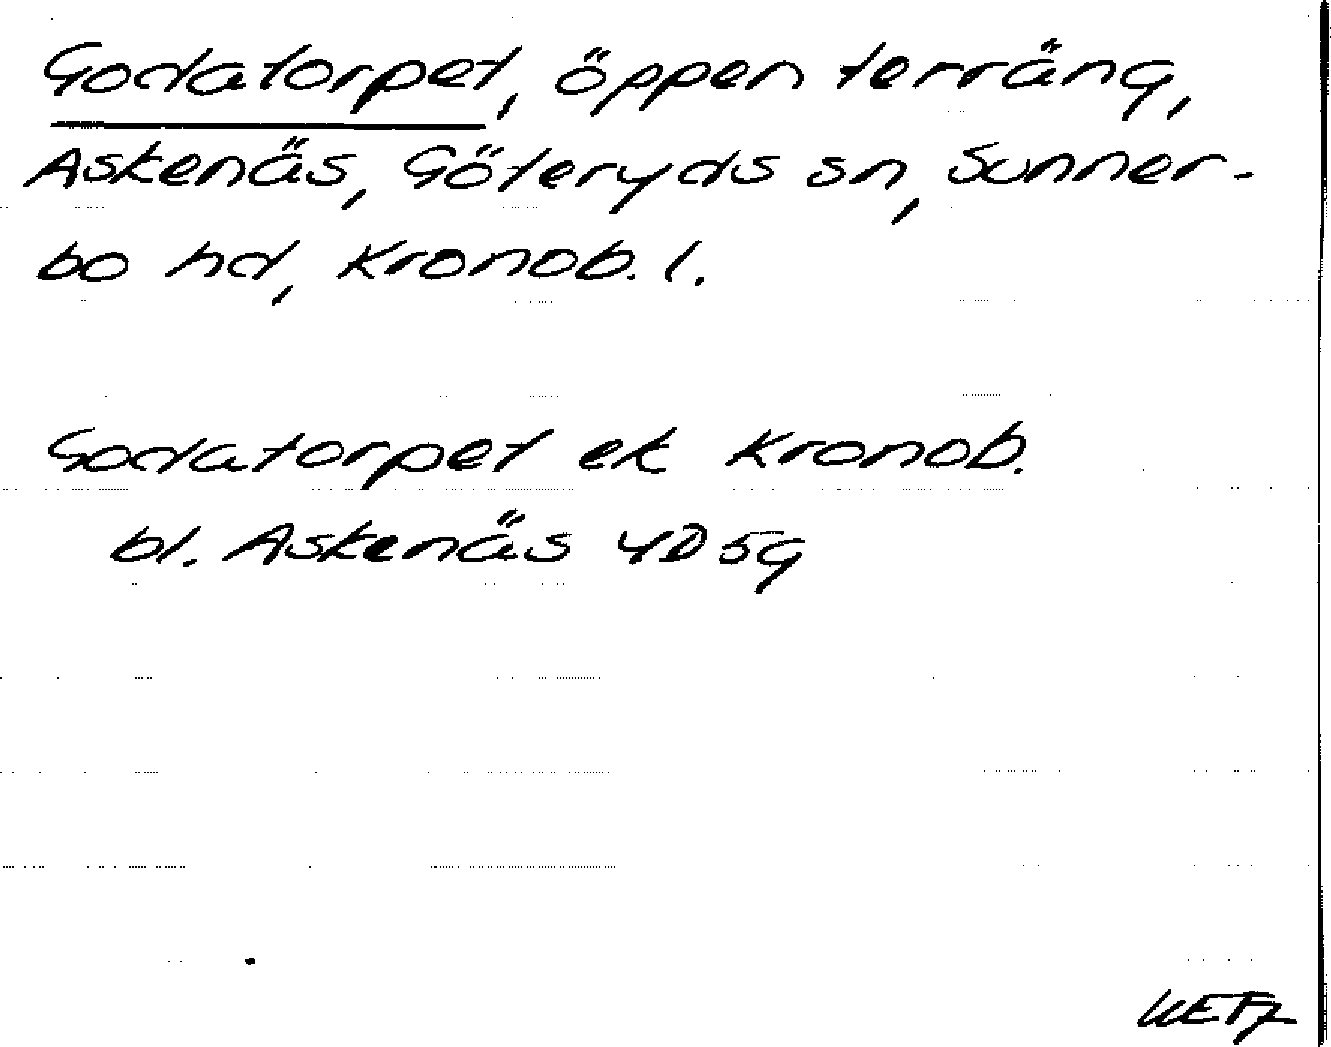 Godatorpet, öppen terräng,
Askenäs, Göteryds sn, Sunner-
bo hd, Kronob. l.
Godatorpet ek Kronob.
bl. Askenäs 4D 5g